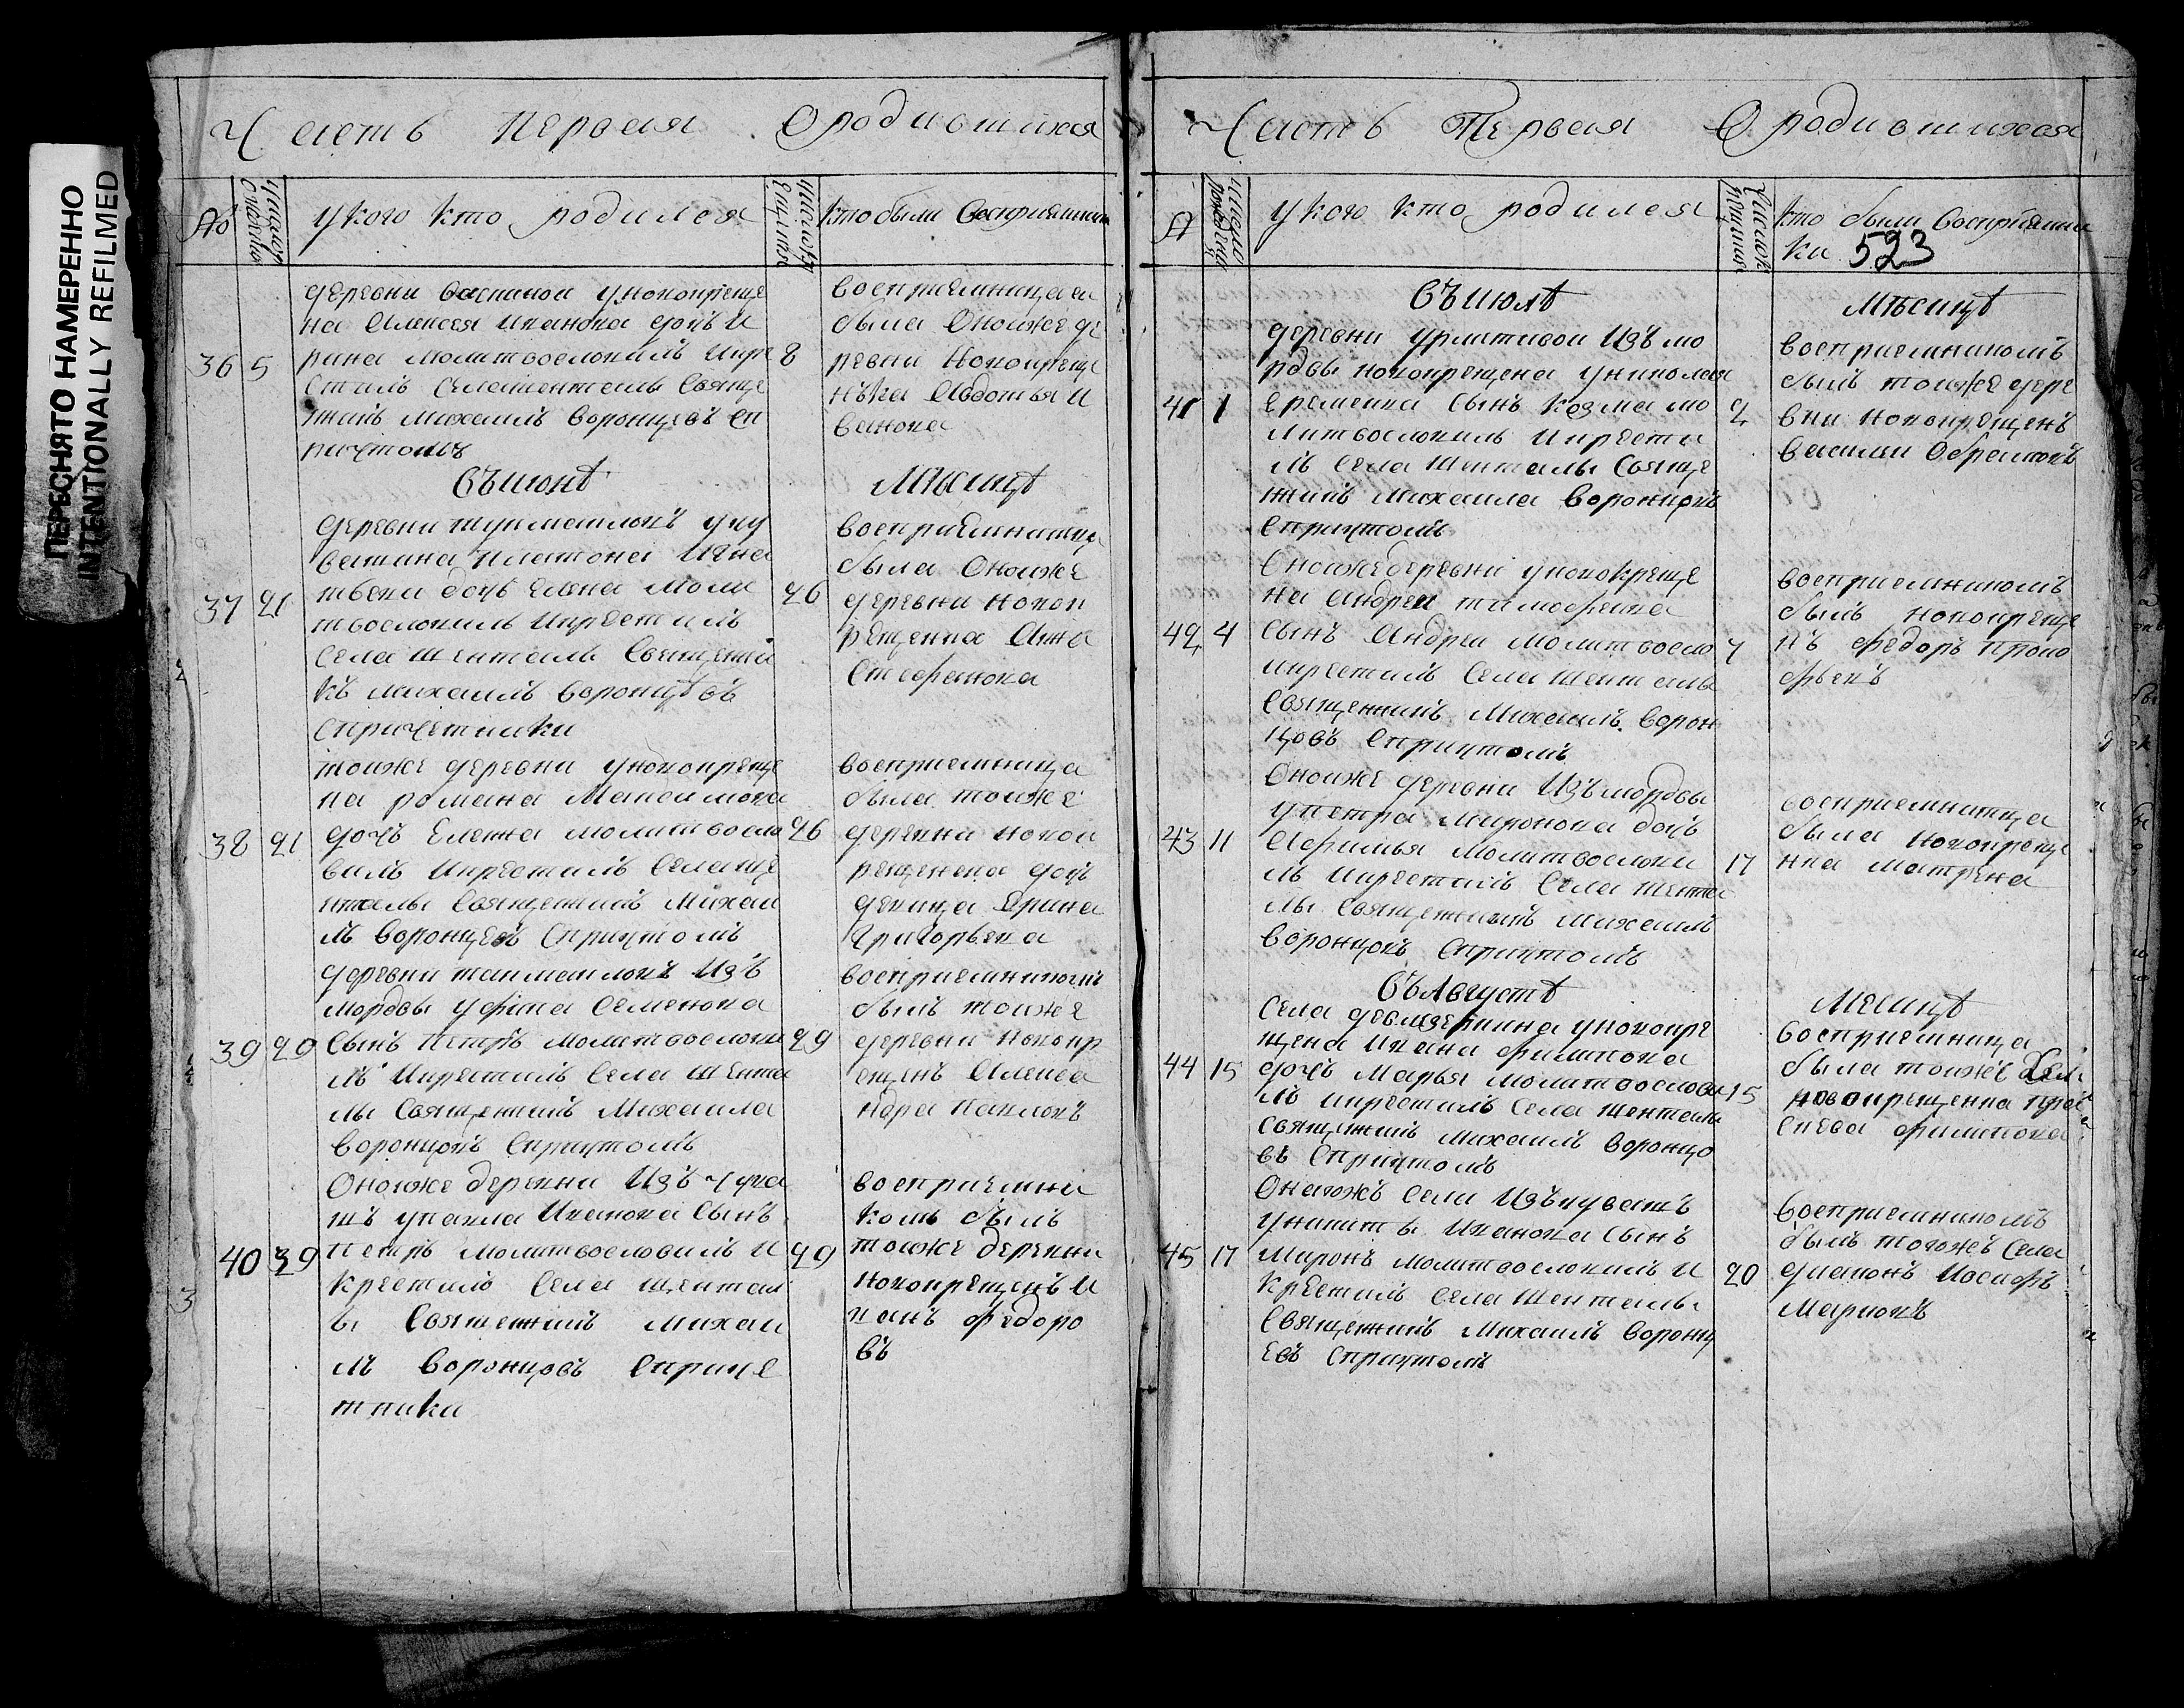 ПЕРЕСНЯТО НАМЕРЕННО
INTENTIONALLY REFILMED
Часть первая О родившихся
№
у кого кто родился
кто были восприемники
деревни
у новокреще
на Алексея Иванова дочь И
рина молитвословилъ и кре
стилъ села Шенталы Свяще
нникъ Михаилъ Воронцовъ съ
причтомъ
36 5
8
восприемницаю
была оной же де
ревни новокреще
нька Авдотья И
ванова
въ июнѣ
Мѣсицѣ
деревни
у чу
вашина Платона Игна
тьева дочь Елена моли
твословилъ и крестилъ
села Шенталы Священни
къ Михаилъ Воронцовъ
с причетники
37 21
26
восприемница
была оной же
деревни новок
рещенна Анна
Стефанова
той же деревни у новокреще
на Романа Максимова
дочь Елена молитвосло
вилъ и крестилъ села Ше
нталы Священникъ Михаи
лъ Воронцовъ с причтомъ
38 21
26
восприемница
была той же
деревни новок
рещенова дочь
девица Ирина
Григорьева
деревни
изъ
мордвы у
Семенова
сынъ Петръ молитвослови
лъ и крестилъ села Шента
лы Священникъ Михаила
Воронцовъ с причтомъ
39 29
29
восприемникомъ
былъ той же
деревни новокр
ещенъ Алекса
ндра Павловъ
оной же деревни изъ чува
шъ у Павла Иванова сынъ
Петръ молитвословилъ и
крестилъ села Шентал
ы Священникъ Михаи
лъ Воронцовъ с приче
тники
40 29
29
восприемни
комъ былъ
той же деревни
новокрещенъ И
ванъ Федоро
въ
Часть Первая О родившихся
№
число рождения
у кого кто родился
кто были восприемни
ки 523
въ июлѣ
Мѣсицѣ
деревни
изъ мо
рдвы новокрещена у Николая
Еремеева сынъ Козма мо
литвословилъ и крести
лъ села Шенталы Свяще
нникъ Михаила Воронцовъ
с причтомъ
41 1
2
восприемникомъ
былъ той же дере
вни новокрещенъ
Василий
оной же деревни у новокреще
на Андрея Тимофеева
сынъ Андрей молитвосло
и крестилъ села Шенталы
Священникъ Михаилъ Ворон
цовъ с причтомъ
42 4
7
восприемникомъ
былъ новокреще
нъ Федоръ Проко
фьевъ
оной же деревни изъ мордвы
у Петра Миронова дочь
Афимья молитвослови
лъ и крестилъ села Шента
лы Священникъ Михаилъ
Воронцовъ с причтомъ
43 11
17
восприемница
была новокреще
нна Матрена
въ Августѣ
Месицѣ
села
у новокре
щена Ивана Филипова
дочь Марья молитвослови
лъ и крестилъ села Шенталы
Священникъ Михаилъ Воронцо
въ с причтомъ
44 15
15
восприемница
была той же
новокрещенна
Филипова
онагожъ села изъ чувашъ
у Никиты Иванова сынъ
Миронъ молитвословилъ и
крестилъ села Шенталы
Священникъ Михаилъ Воронц
евъ с причтомъ
45 17
20
восприемникомъ
былъ тогожъ села
дьяконъ Иосифъ